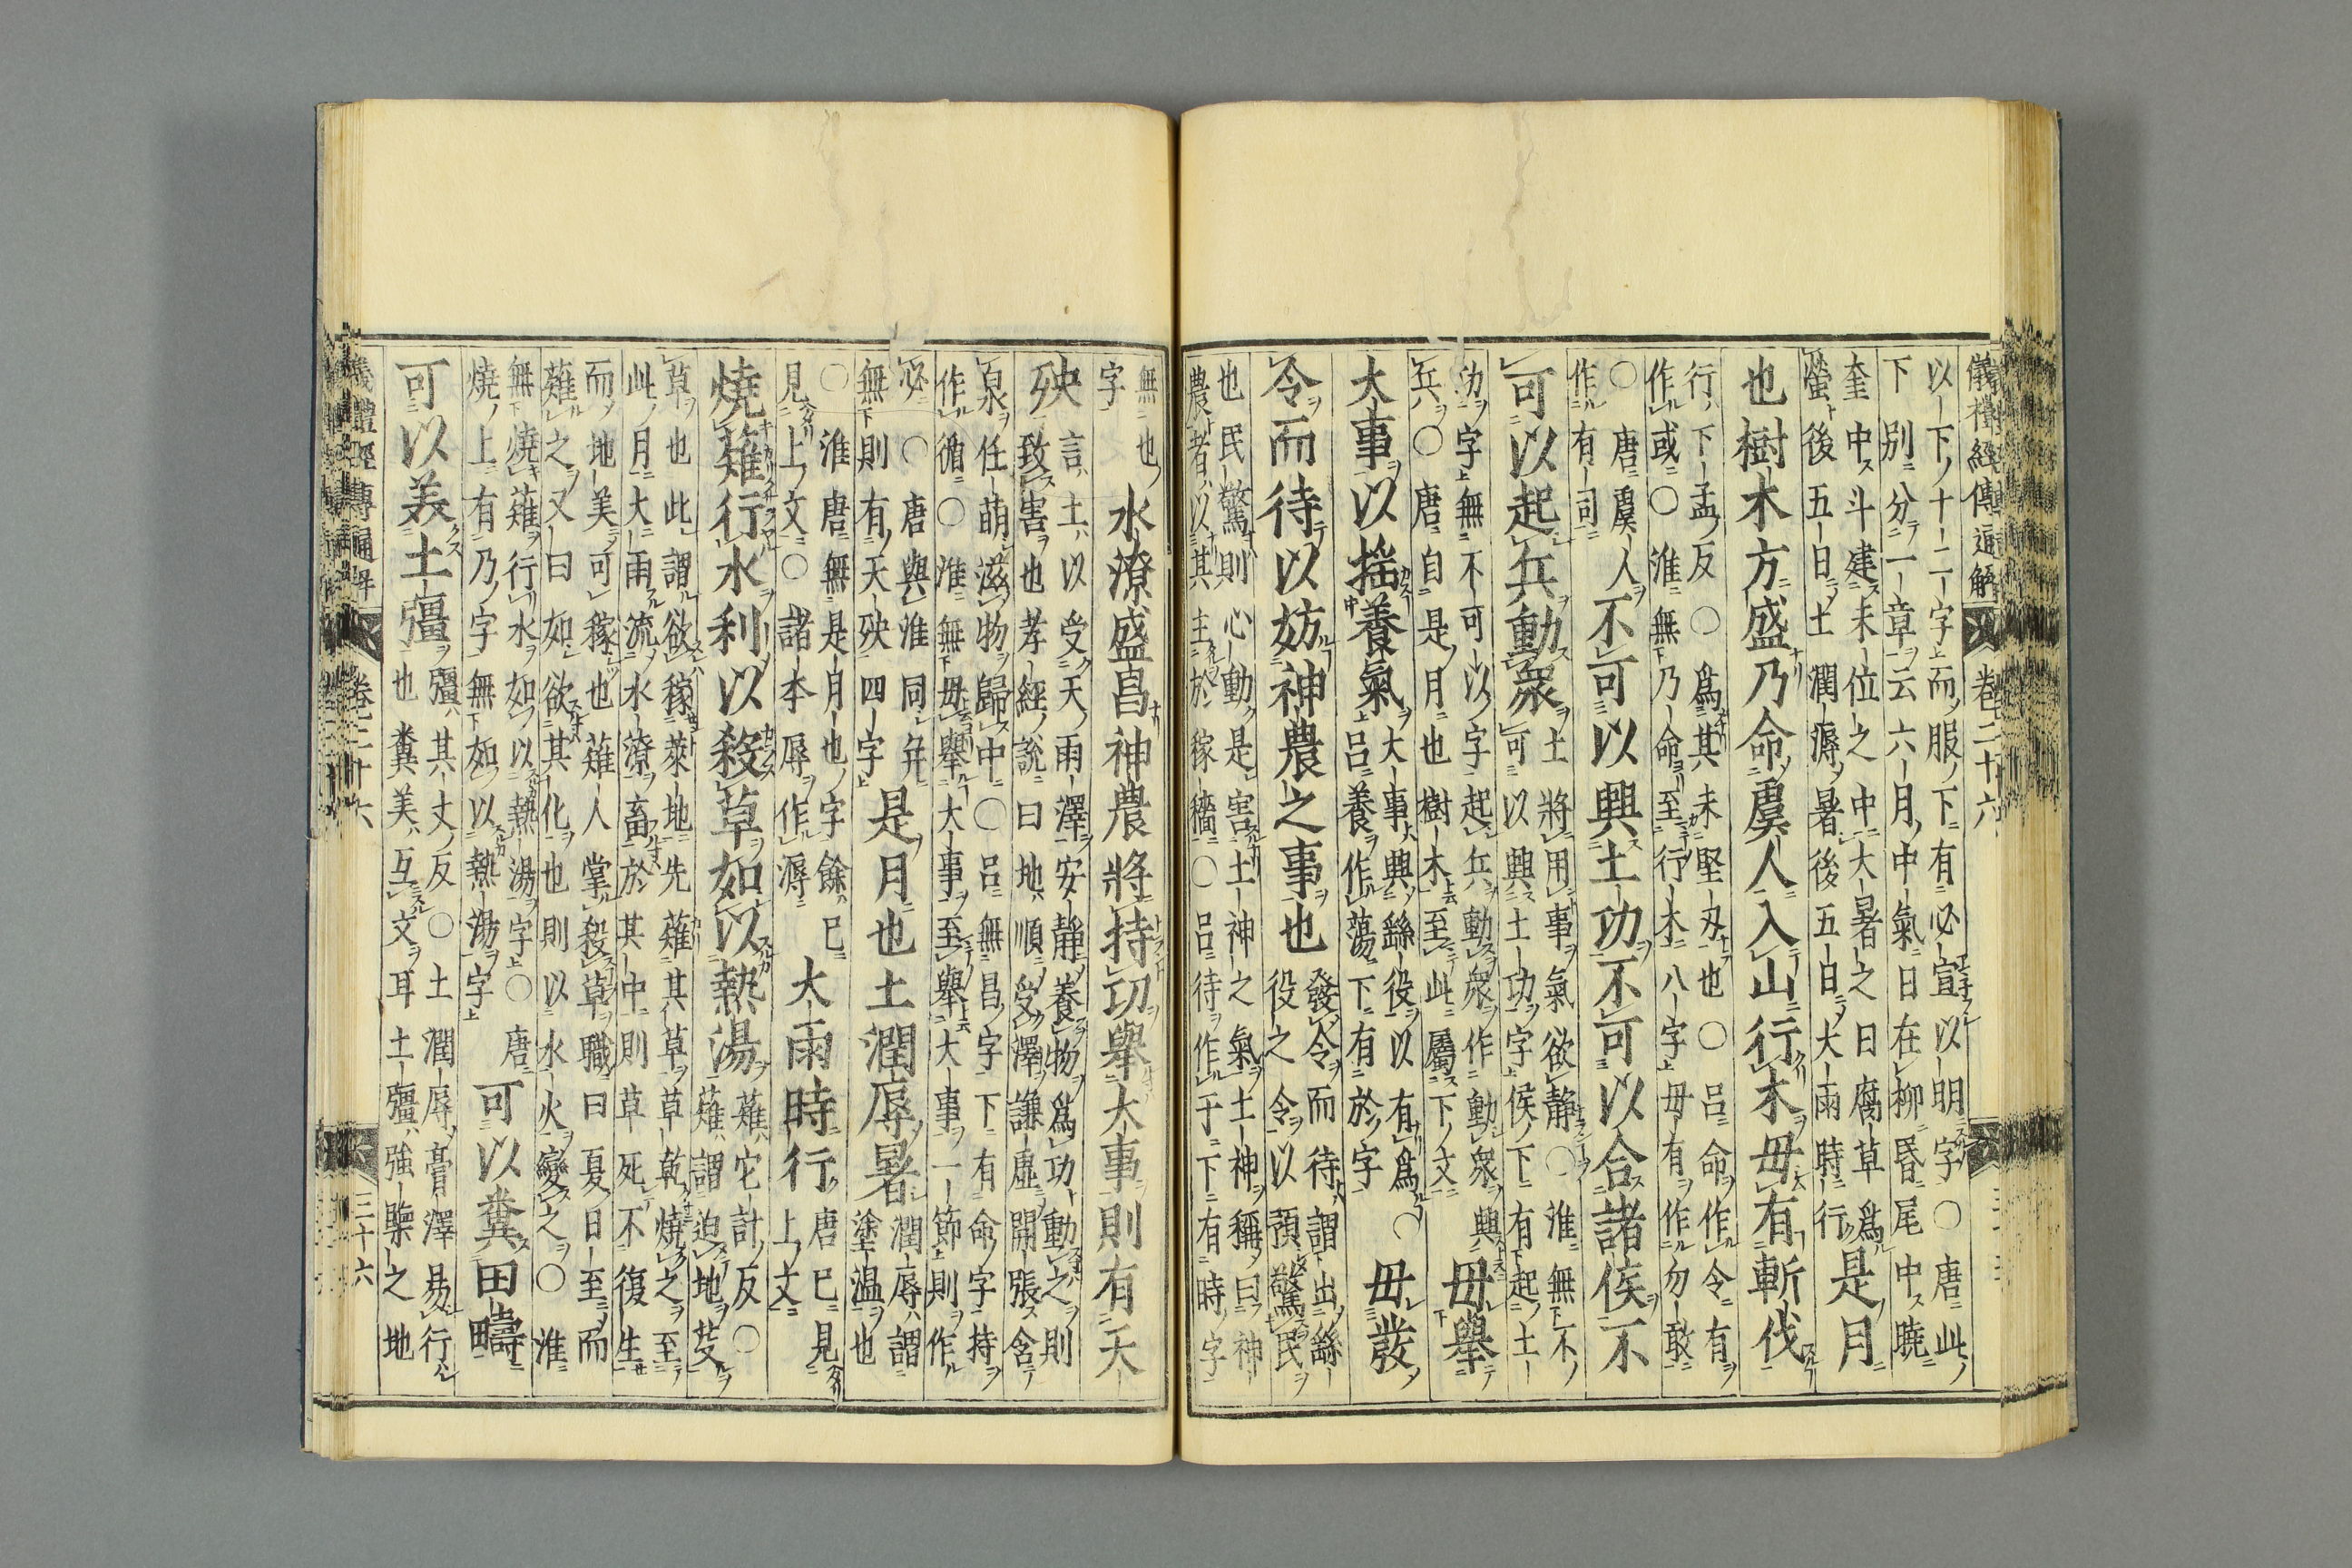 儀禮經傳通解 卷二十六
以下十二字而服下有必宣以明字○唐此
下別分一章云六月中氣日在柳昏尾中曉
奎中斗建未位之中大暑之日腐草爲
螢後五日土潤溽暑後五日大雨時行 是月
也樹木方盛乃命虞人入山行木毋有斬伐
行下孟反○爲其未堅刃也○呂命作令有
作或○淮無乃命至行木八字毋有作勿敢
○唐虞人
作有司
不可以興土功不可以合諸侯不
可以起兵動衆
土將用事氣欲靜○淮無不
可以興土功字侯下有起土
功字無不可以字起兵動衆作動衆興
兵○唐自是月也樹木至此屬下文
毋舉
大事以搖養氣
大事興繇役以有爲○
呂養作蕩下有於字
毋發
令而待以妨神農之事也
發令而待謂出繇
役之令以預驚民
也民驚則心動是害土神之氣土神稱曰神
農者以其主於稼穡○呂待作于下有時字
無也
字
水潦盛昌神農將持功舉大事則有天
殃
言土以受天雨澤安靜養物爲功動之則
致害也孝經說曰地順受澤謙虛開張含
泉任萌滋物歸中○呂無昌字下有命字持
作循○淮無毋舉大事至舉大事一節則作
必○唐與淮同幷
無則有天殃四字
是月也土潤辱暑
潤辱謂
塗溫也
○淮唐無是月也字餘已
見上文○諸本辱作溽
大雨時行
唐已見
上文
燒薙行水利以殺草如以熱湯
薙它計反○
薙謂迫地芟
草也此謂欲稼萊地先薙其草草乾燒之至
此月大雨流水潦畜於其中則草死不復生
而地美可稼也薙人掌殺草職曰夏日至而
薙之又曰如欲其化也則以水火變之○淮
無燒薙行水如以熱湯字○唐
燒上有乃字無如以熱湯字
可以糞田疇
可以美土彊
彊其丈反○土潤辱膏澤易行
也糞美互文耳土彊強㯺之地
卷二十六 三十六